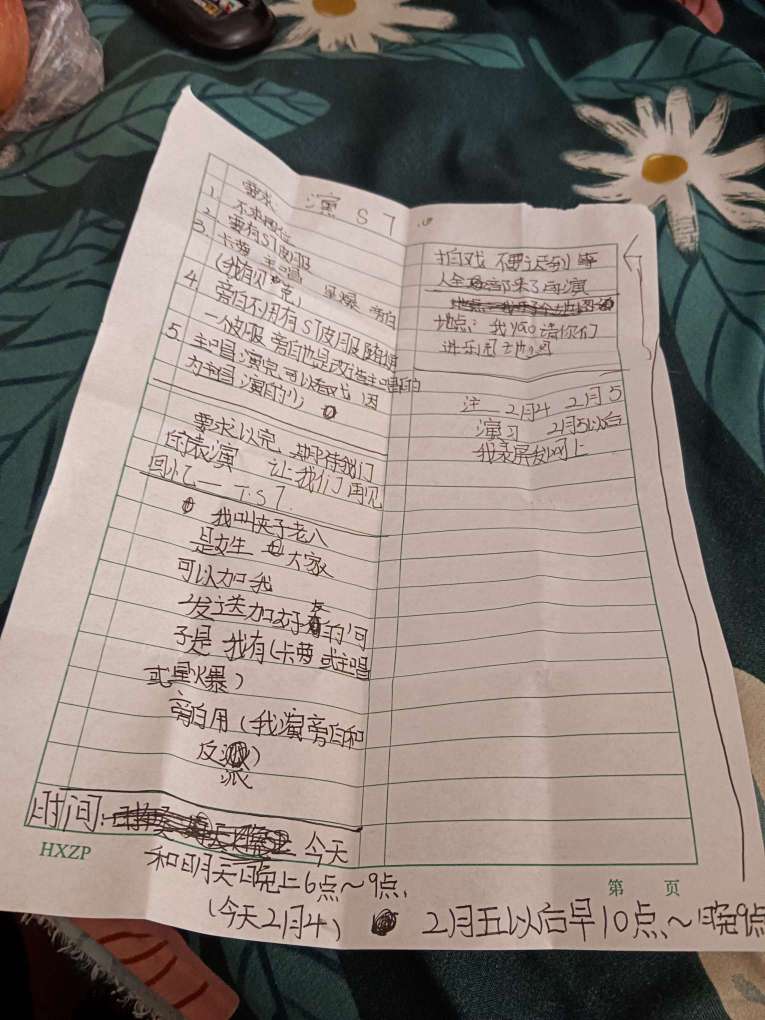 演 S7
要求
1. 不求段位
2. 要有S7皮肤
3. 卡梦 主唱 星爆 旁白
(我有贝克)
4. 旁白不用有S7皮肤随便
一个皮肤 旁白也是改造主唱的
5. 主唱演完可以看戏(因
为主唱演的少)
要求以完,期待我们
的表演 让我们再见
回忆—TS7.
我叫快子老八
是女生 大家
可以加我
发送加好友的问
子是 我有(卡梦 或主唱
或星爆)
旁白用(我演旁白和
反派)
时间: 今天
和明天晚上6点~9点,
(今天2月4)
2月五以后早10点~晚9点
拍戏 不要迟到 等
人全部来了在演
地点: 我yao请你们
进乐园地图
注 2月4 2月5
演习 2月5以后
我录屏发网上
HXZP
第 页